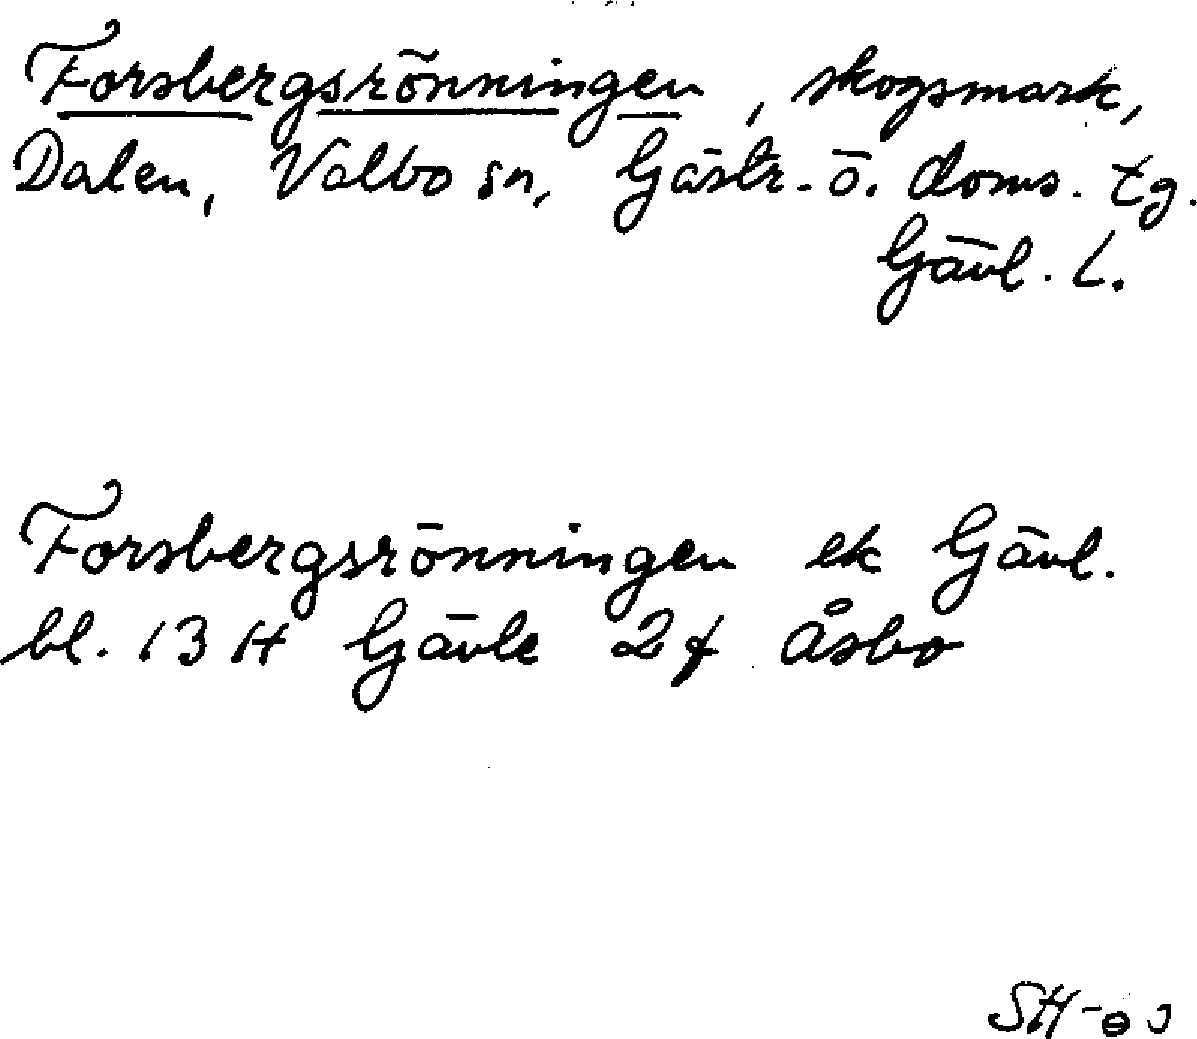 Forsbergsrönningen, skogsmark,
Dalen, Valbo sn, Gästr. ö. doms. tg.
Gävl. L.
Forsbergsrönningen ek Gävl.
bl. 13 H Gävle 2f Åsbo